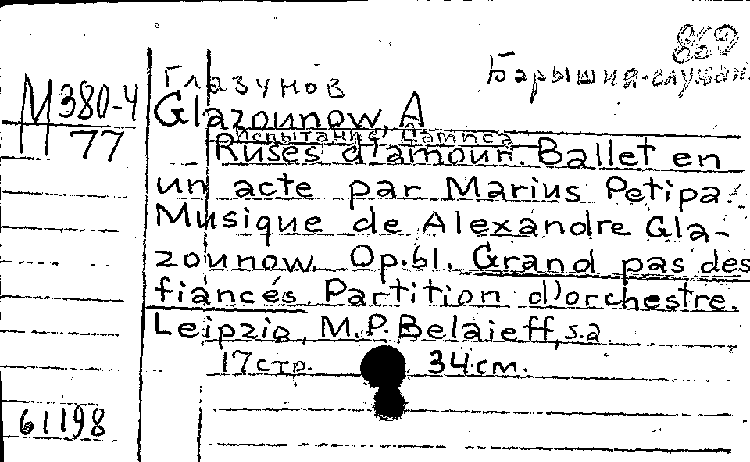 869
Глазунов Барышня-служан.
М 380-4 Glazounow, A
77 Испытание, Дамиса
Ruses d'amour. Ballet en
un acte par Marius Petipa.
Musique de Alexandre Gla-
zounow. Op.61. Grand pas des
fiancés. Partition d'orchestre.
Leipzig, M.P. Belaieff, s.a
17 стр. 34 см.
61198